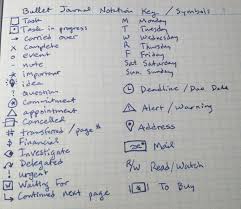 Bullet Journal Notation Key / Symbols
Task
Task in progress
→ carried over
x complete
o event
- note
* important
idea
? question
commitment
appointment
Cancelled
# transferred / page #
$ Financial
Investigate
Delegated
! urgent
W Waiting For
Continued next page
M Monday
T Tuesday
W Wednesday
R Thursday
F Friday
Sat Saturday
Sun. Sunday
Deadline / Due Date
! Alert / Warning
Address
Mail
R/W Read/Watch
$ To Buy